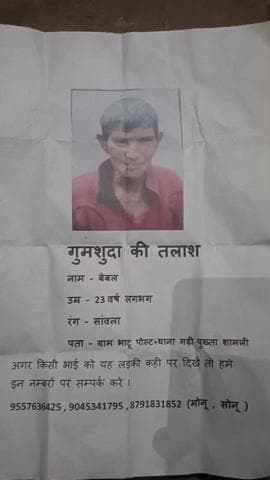 गुमशुदा की तलाश
नाम - बेबल
उम्र - 23 वर्ष लगभग
रंग - सांवला
पता - ग्राम भाटू पोस्ट+थाना गढी पुख्ता शामली
अगर किसी भाई को यह लड़की कही पर दिखे तो हमे
इन नम्बरों पर सम्पर्क करे !
9557636425 , 9045341795 ,8791831852 (मोनू , सोनू )